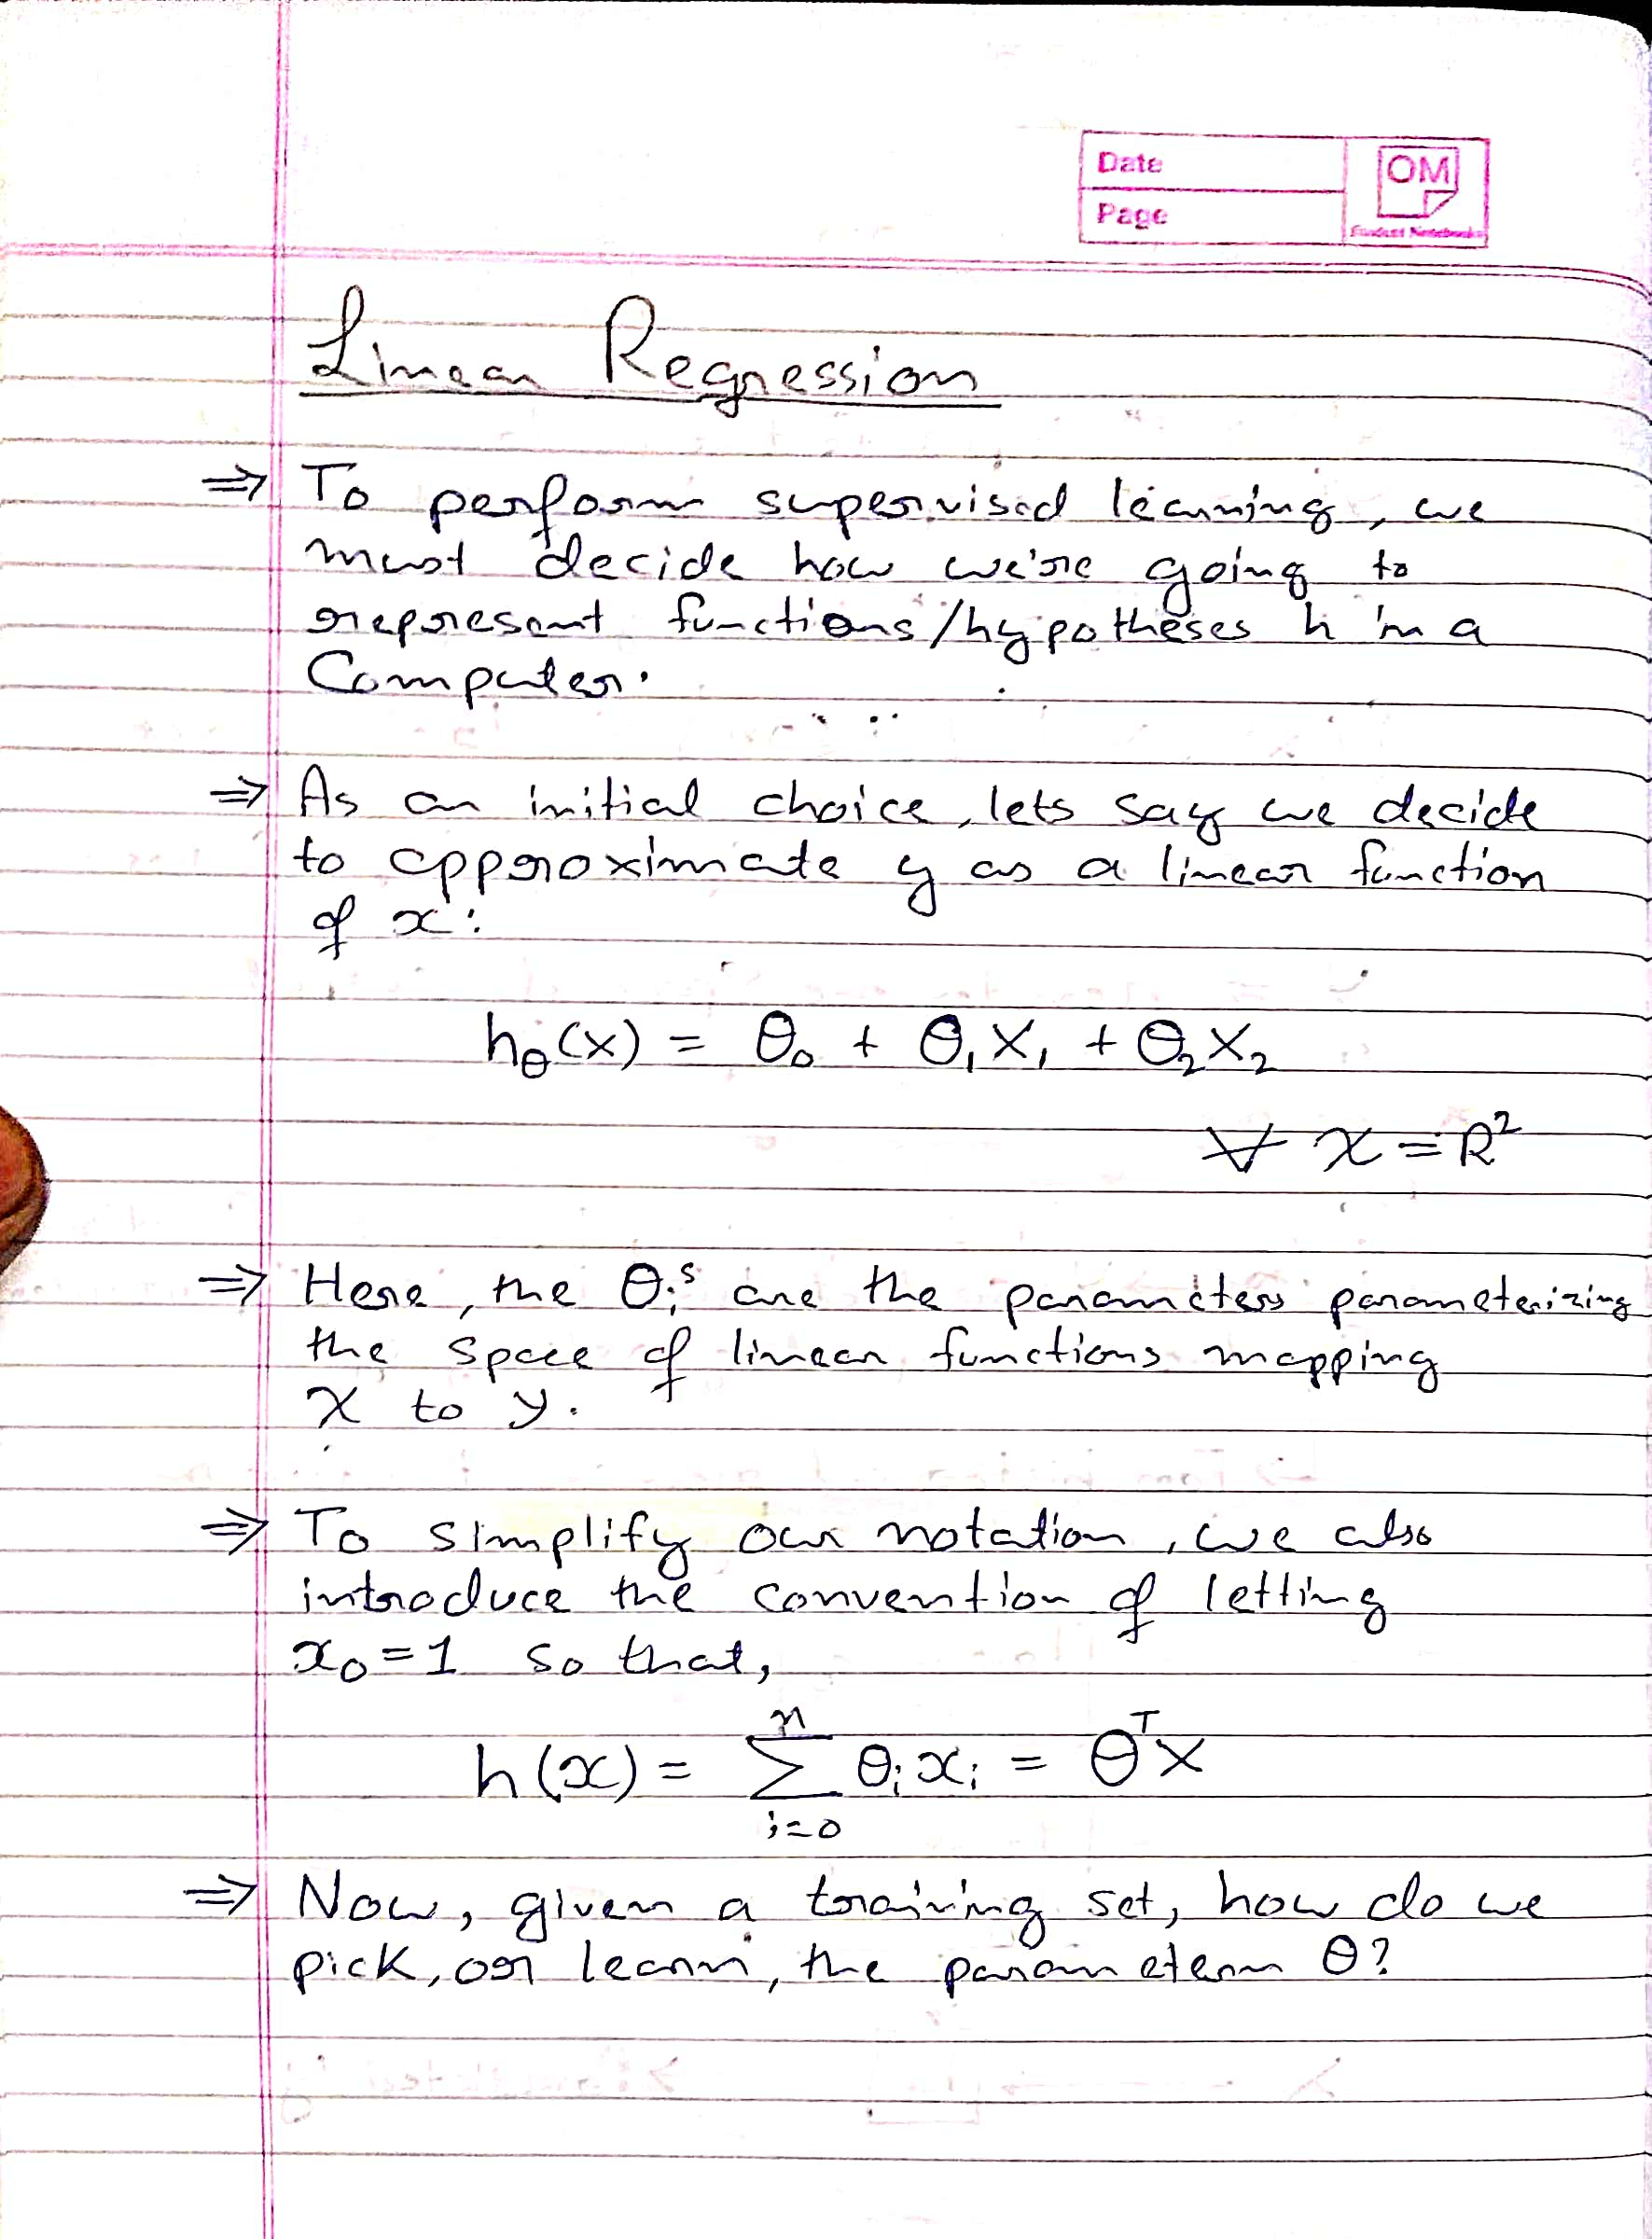 Date
Page
OM
Student Notebooks
Linear Regression
⇒ To perform supervised learning, we
must decide how we're going to
represent functions/hypotheses h in a
Computer.
⇒ As an initial choice, lets say we decide
to approximate y as a linear function
of x:
hθ(x) = θ₀ + θ₁X₁ + θ₂X₂
∀ x = R²
⇒ Here, the θᵢ's are the parameters parameterizing
the space of linear functions mapping
X to y.
⇒ To simplify our notation, we also
introduce the convention of letting
x₀ = 1 so that,
h(x) = Σ (i=0 to n) θᵢxᵢ = θᵀx
⇒ Now, given a training set, how do we
pick, or learn, the parameters θ?